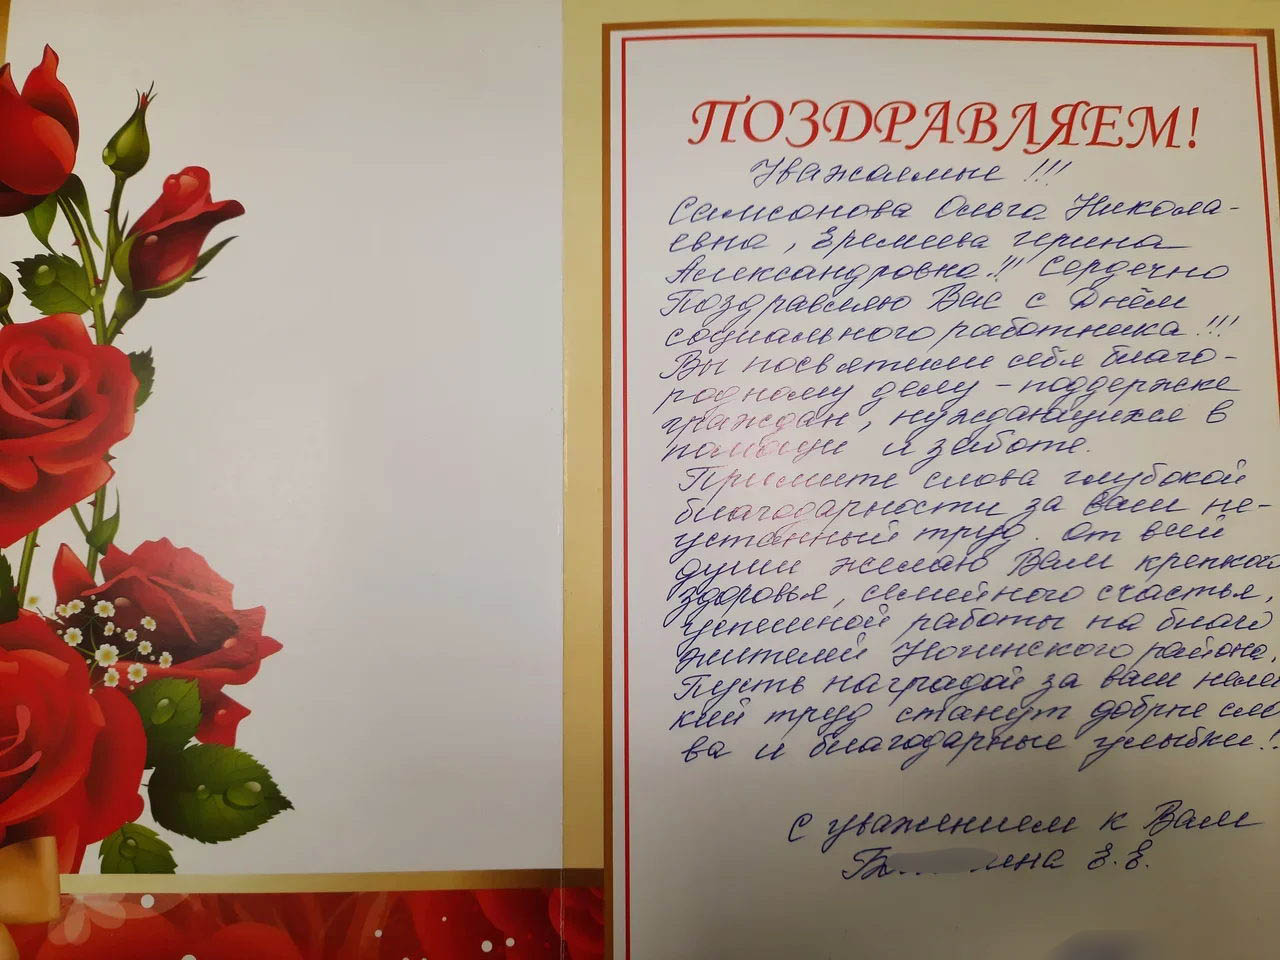 ПОЗДРАВЛЯЕМ!
Уважаемые !!!
Самсонова Ольга Никола-
евна, Еремеева Ирина
Александровна!!! Сердечно
Поздравляю Вас с Днём
социального работника!!!
Вы посвятили себя благо-
родному делу - поддержке
граждан, нуждающихся в
помощи и заботе.
Примите слова глубокой
благодарности за ваш не-
устанный труд. От всей
души желаю Вам крепкого
здоровья, семейного счастья,
успешной работы на благо
жителей Ногинского района.
Пусть наградой за ваш нелег
кий труд станут добрые сло
ва и благодарные улыбки!!
С уважением к Вам
Е.Е.